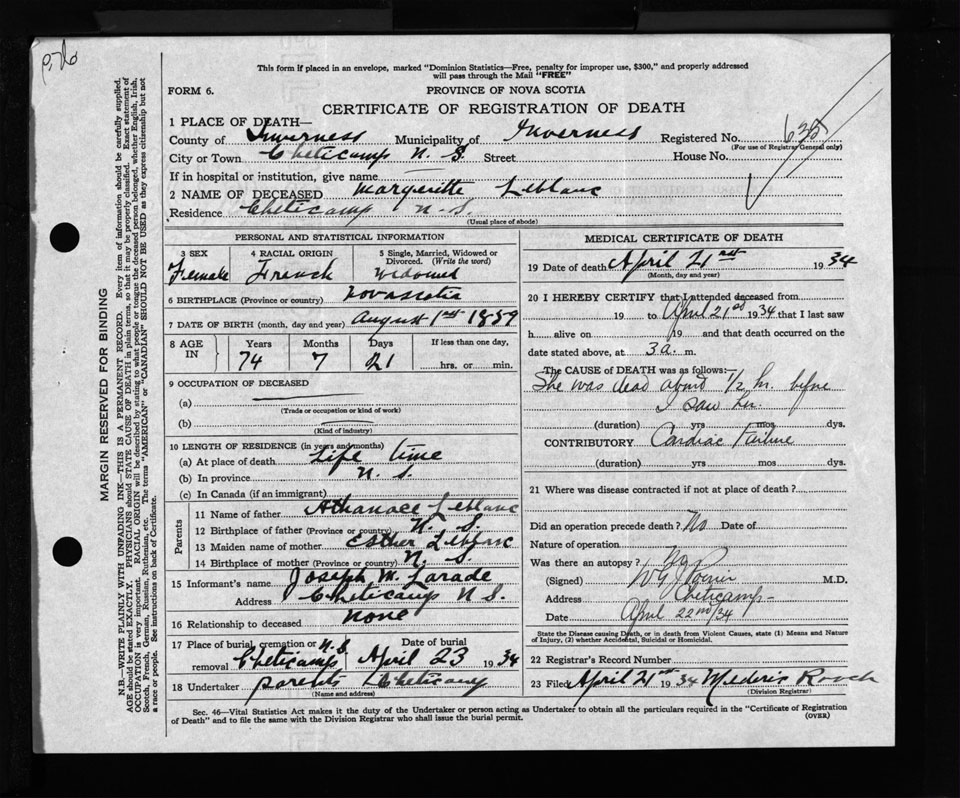 This form if placed in an envelope, marked "Dominion Statistics—Free, penalty for improper use, $300," and properly addressed
will pass through the Mail "FREE"
FORM 6.
PROVINCE OF NOVA SCOTIA
CERTIFICATE OF REGISTRATION OF DEATH
1 PLACE OF DEATH—
County of Inverness Municipality of Inverness Registered No.
(For use of Registrar General only)
City or Town Cheticamp N. S. Street House No.
If in hospital or institution, give name
2 NAME OF DECEASED Margaritte Leblanc
Residence Cheticamp N. S.
(Usual place of abode)
PERSONAL AND STATISTICAL INFORMATION
3 SEX Female
4 RACIAL ORIGIN French
5 Single, Married, Widowed or Divorced. (Write the word) Widowed
6 BIRTHPLACE (Province or country) Novascotia
7 DATE OF BIRTH (month, day and year) August 1st 1859
8 AGE IN Years 74 Months 7 Days 21 If less than one day, hrs. or min.
9 OCCUPATION OF DECEASED
(a)
(Trade or occupation or kind of work)
(b)
(Kind of industry)
10 LENGTH OF RESIDENCE (in years and months)
(a) At place of death Life time
(b) In province N. S.
(c) In Canada (if an immigrant)
Parents
11 Name of father Athanace Leblanc
12 Birthplace of father (Province or country) N. S.
13 Maiden name of mother Esther Leblanc
14 Birthplace of mother (Province or country) N. S.
15 Informant's name Joseph M. Larade
Address Cheticamp N S.
16 Relationship to deceased none
17 Place of burial, cremation or removal Cheticamp N. S. Date of burial April 23 1934
18 Undertaker parents Cheticamp
(Name and address)
MEDICAL CERTIFICATE OF DEATH
19 Date of death April 21st 1934
(Month, day and year)
20 I HEREBY CERTIFY that I attended deceased from
19 to April 21st 1934 that I last saw
h alive on 19 and that death occurred on
date stated above, at 3 a. m.
The CAUSE OF DEATH was as follows:—
She was dead about 1/2 hr. before
I saw her.
(duration) yrs mos dys.
CONTRIBUTORY Cardiac Failure
(duration) yrs mos dys.
21 Where was disease contracted if not at place of death?
Did an operation precede death? No Date of
Nature of operation
Was there an autopsy?
(Signed) Poirier M.D.
Address Cheticamp
Date April 22nd/34
State the Disease causing Death, or in death from Violent Causes, state (1) Means and Nature
of Injury, (2) whether Accidental, Suicidal or Homicidal.
22 Registrar's Record Number
23 Filed April 21st 1934 Mederic Roach
(Division Registrar)
Sec. 46—Vital Statistics Act makes it the duty of the Undertaker or person acting as Undertaker to obtain all the particulars required in the "Certificate of Registration
of Death" and to file the same with the Division Registrar who shall issue the burial permit.
(OVER)
MARGIN RESERVED FOR BINDING
N.B.—WRITE PLAINLY WITH UNFADING INK—THIS IS A PERMANENT RECORD. Every item of information should be carefully supplied.
AGE should be stated EXACTLY. PHYSICIANS should STATE CAUSE OF DEATH in plain terms, so that it may be properly classified. Exact statement of
OCCUPATION is very important. RACIAL ORIGIN will be described by stating to what people or tongue the deceased person belonged, whether English, Irish,
Scotch, French, German, Russian, Ruthenian, etc. The terms "AMERICAN" or "CANADIAN" SHOULD NOT BE USED as they express citizenship but not
a race or people. See instructions on back of Certificate.